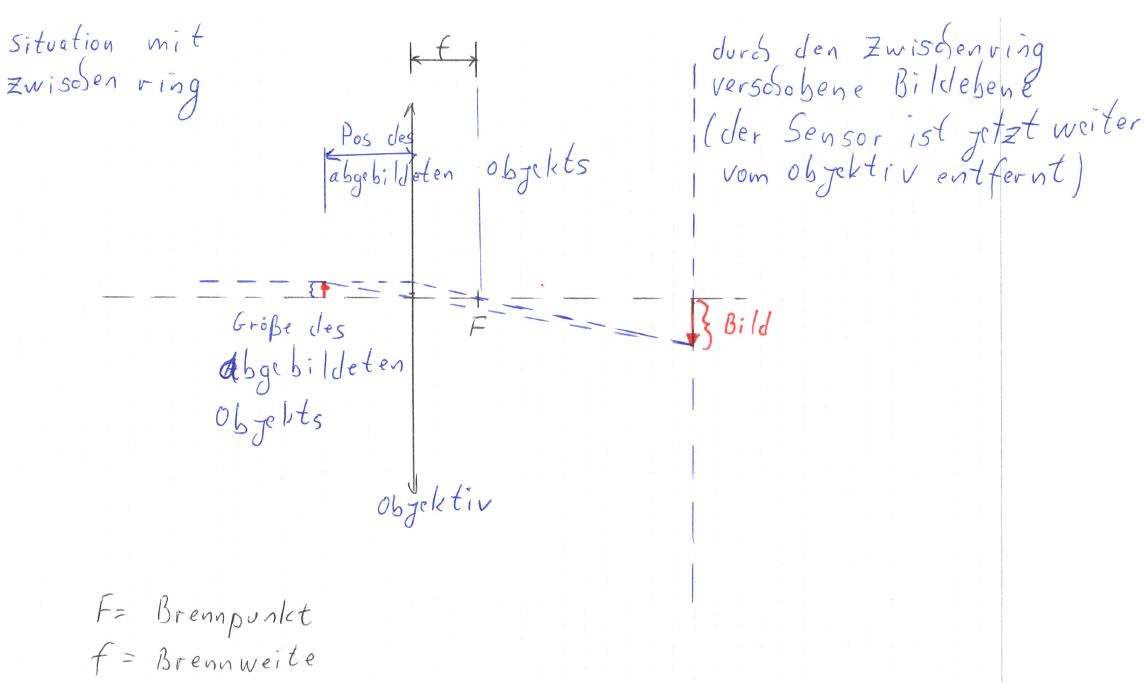 Situation mit
Zwischenring
f
durch den Zwischenring
verschobene Bildebene
(der Sensor ist jetzt weiter
vom Objektiv entfernt)
Pos des
abgebildeten Objekts
F
Bild
Größe des
abgebildeten
Objekts
Objektiv
F= Brennpunkt
f = Brennweite